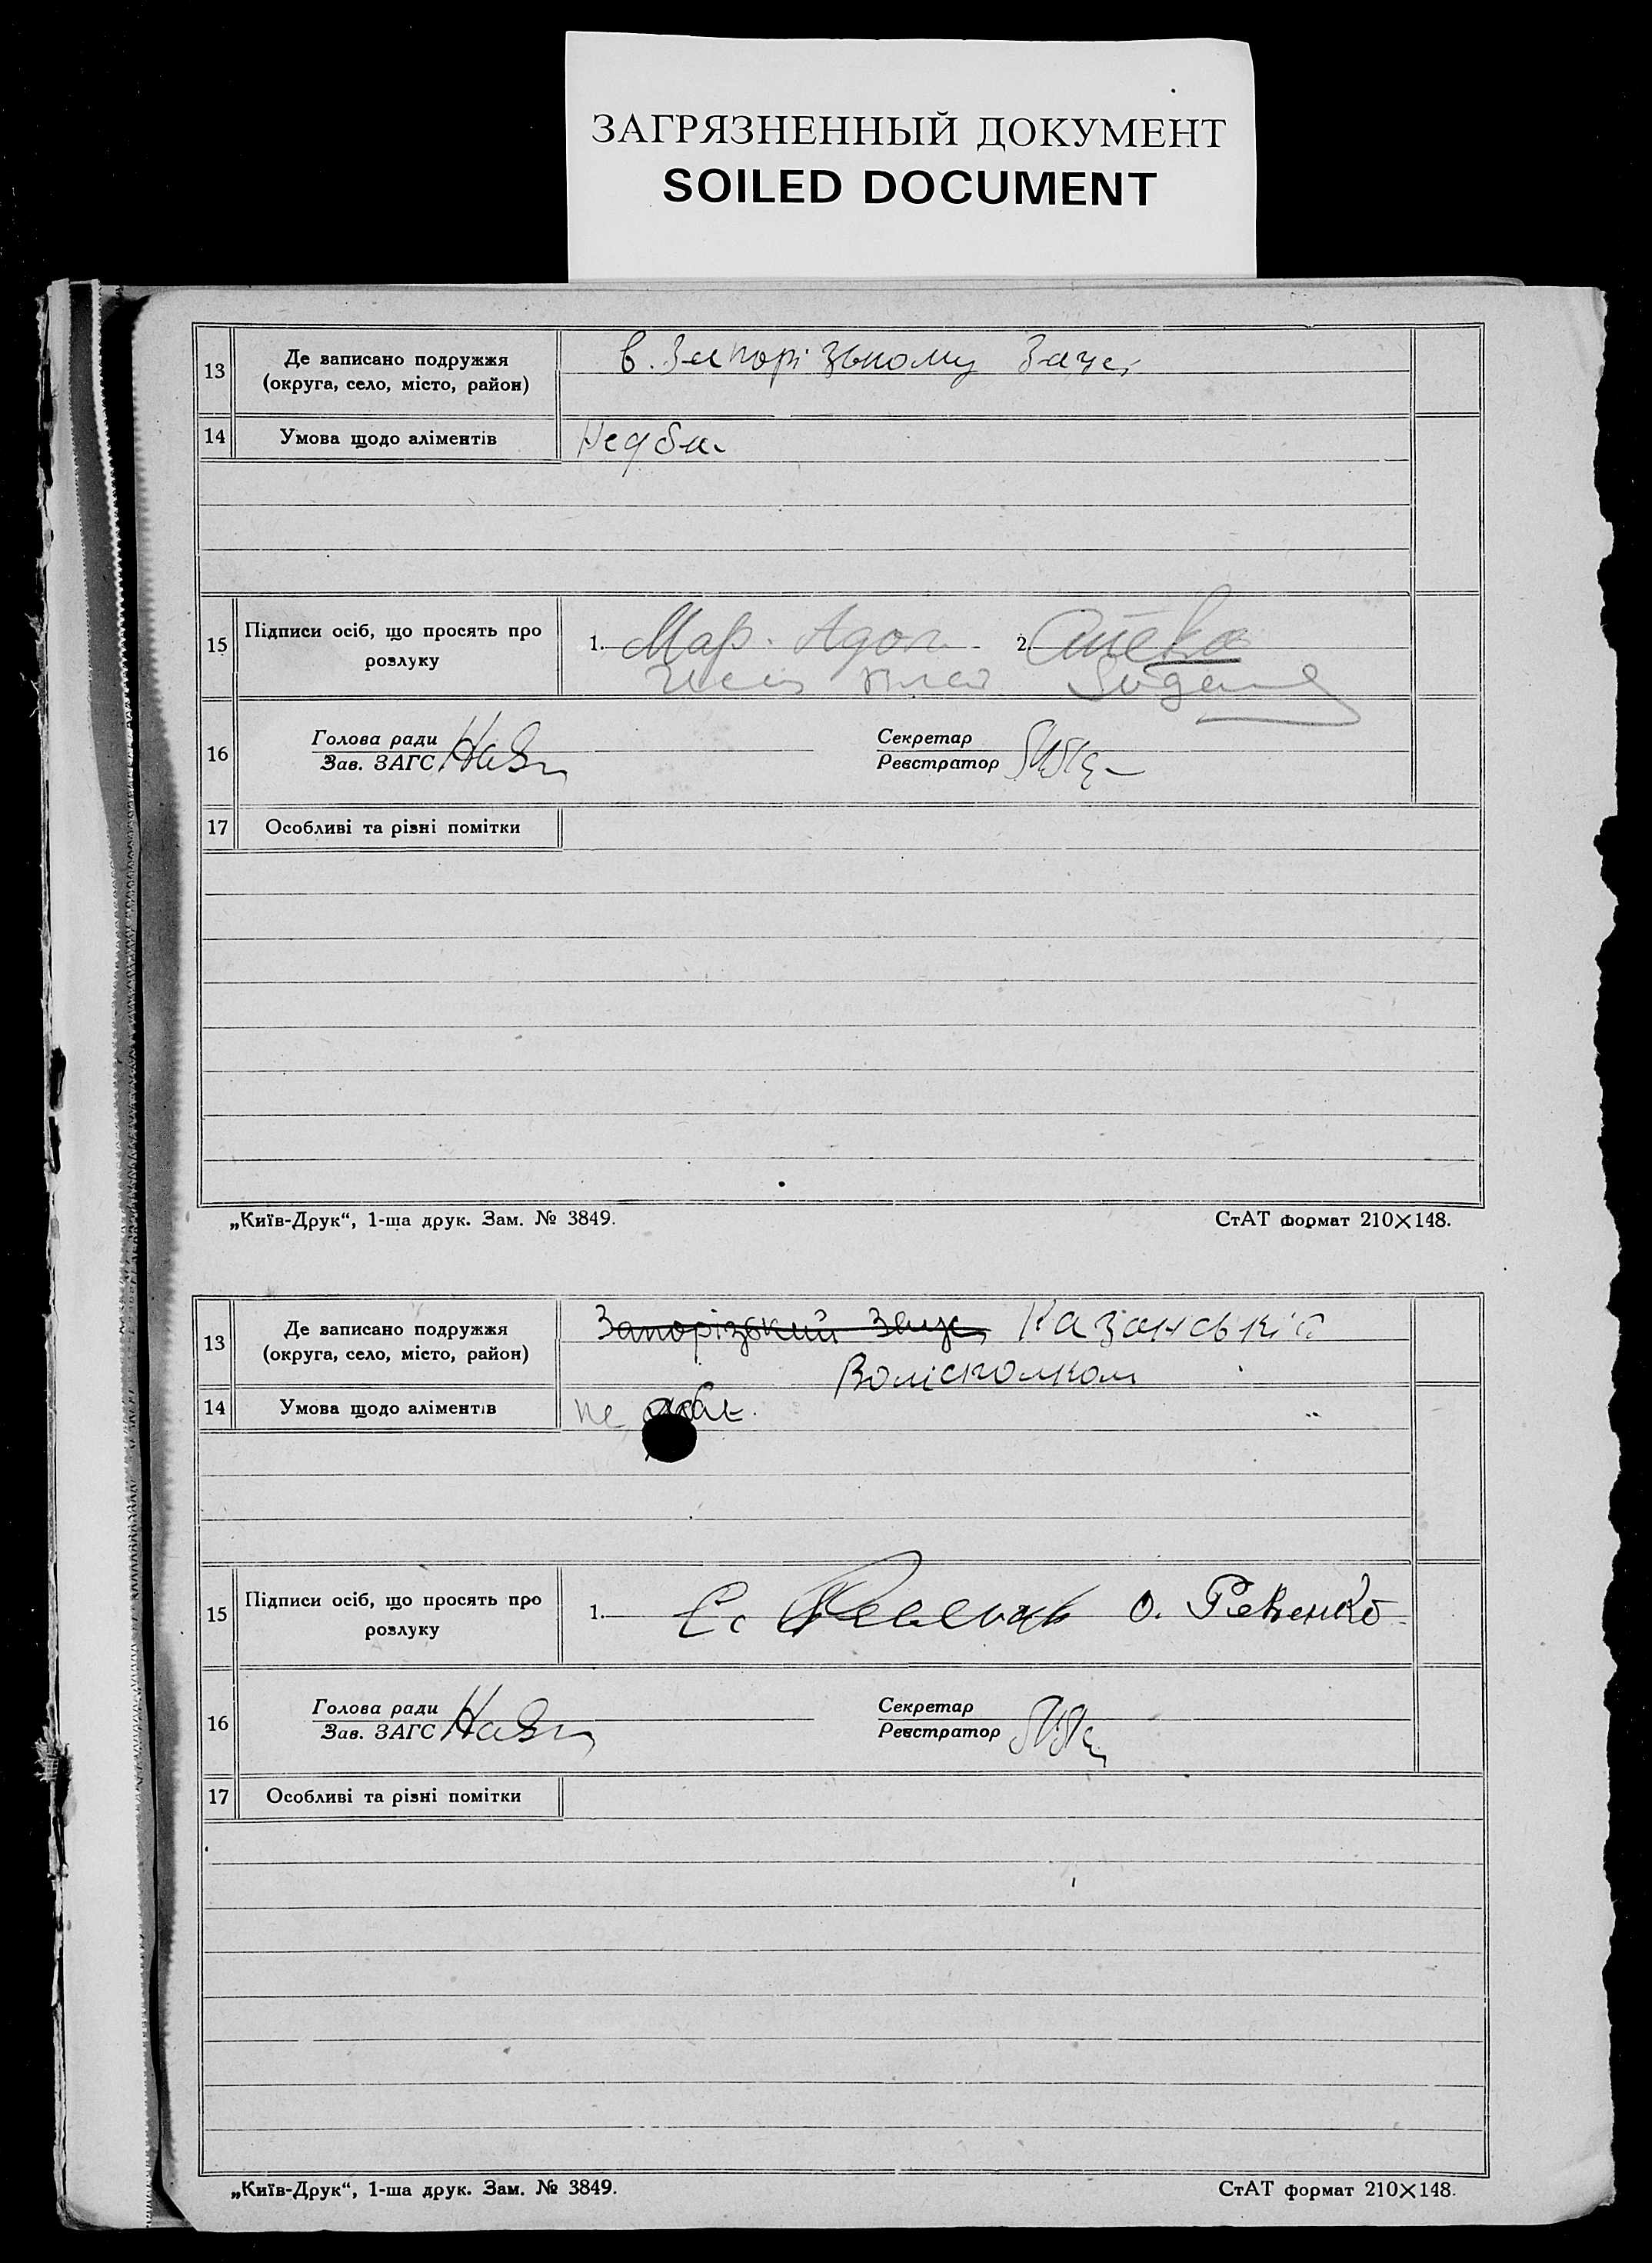 ЗАГРЯЗНЕННЫЙ ДОКУМЕНТ
SOILED DOCUMENT
13
Де записано подружжя
(округа, село, місто, район)
в. Запорізькому Загсі
14
Умова щодо аліментів
15
Підписи осіб, що просять про
розлуку
1.
2.
16
Голова ради
Зав. ЗАГС
Секретар
Реєстратор
17
Особливі та різні помітки
„Київ-Друк“, 1-ша друк. Зам. № 3849.
СтАТ формат 210×148.
13
Де записано подружжя
(округа, село, місто, район)
Запорізький Загс Казанський
Волісполком
14
Умова щодо аліментів
не
15
Підписи осіб, що просять про
розлуку
1.
О. Ревенко
16
Голова ради
Зав. ЗАГС
Секретар
Реєстратор
17
Особливі та різні помітки
„Київ-Друк“, 1-ша друк. Зам. № 3849.
СтАТ формат 210×148.